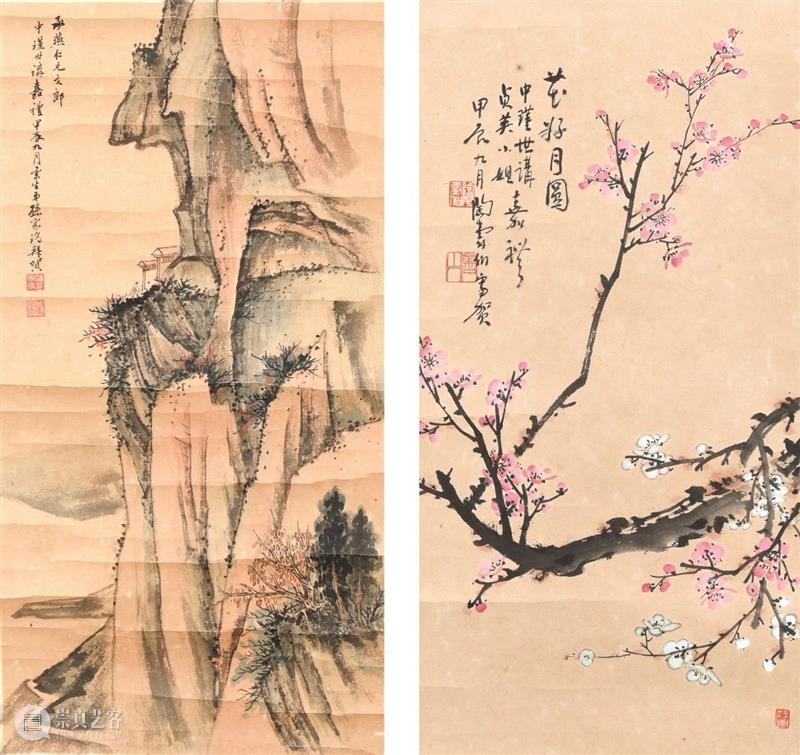 承燕仁兄文郎
中瑾世講嘉禮甲辰九月雲生弟孫家
花好月圓
中瑾世講嘉禮
貞英小姐
甲辰九月陶壽伯寫賀
崇真艺客